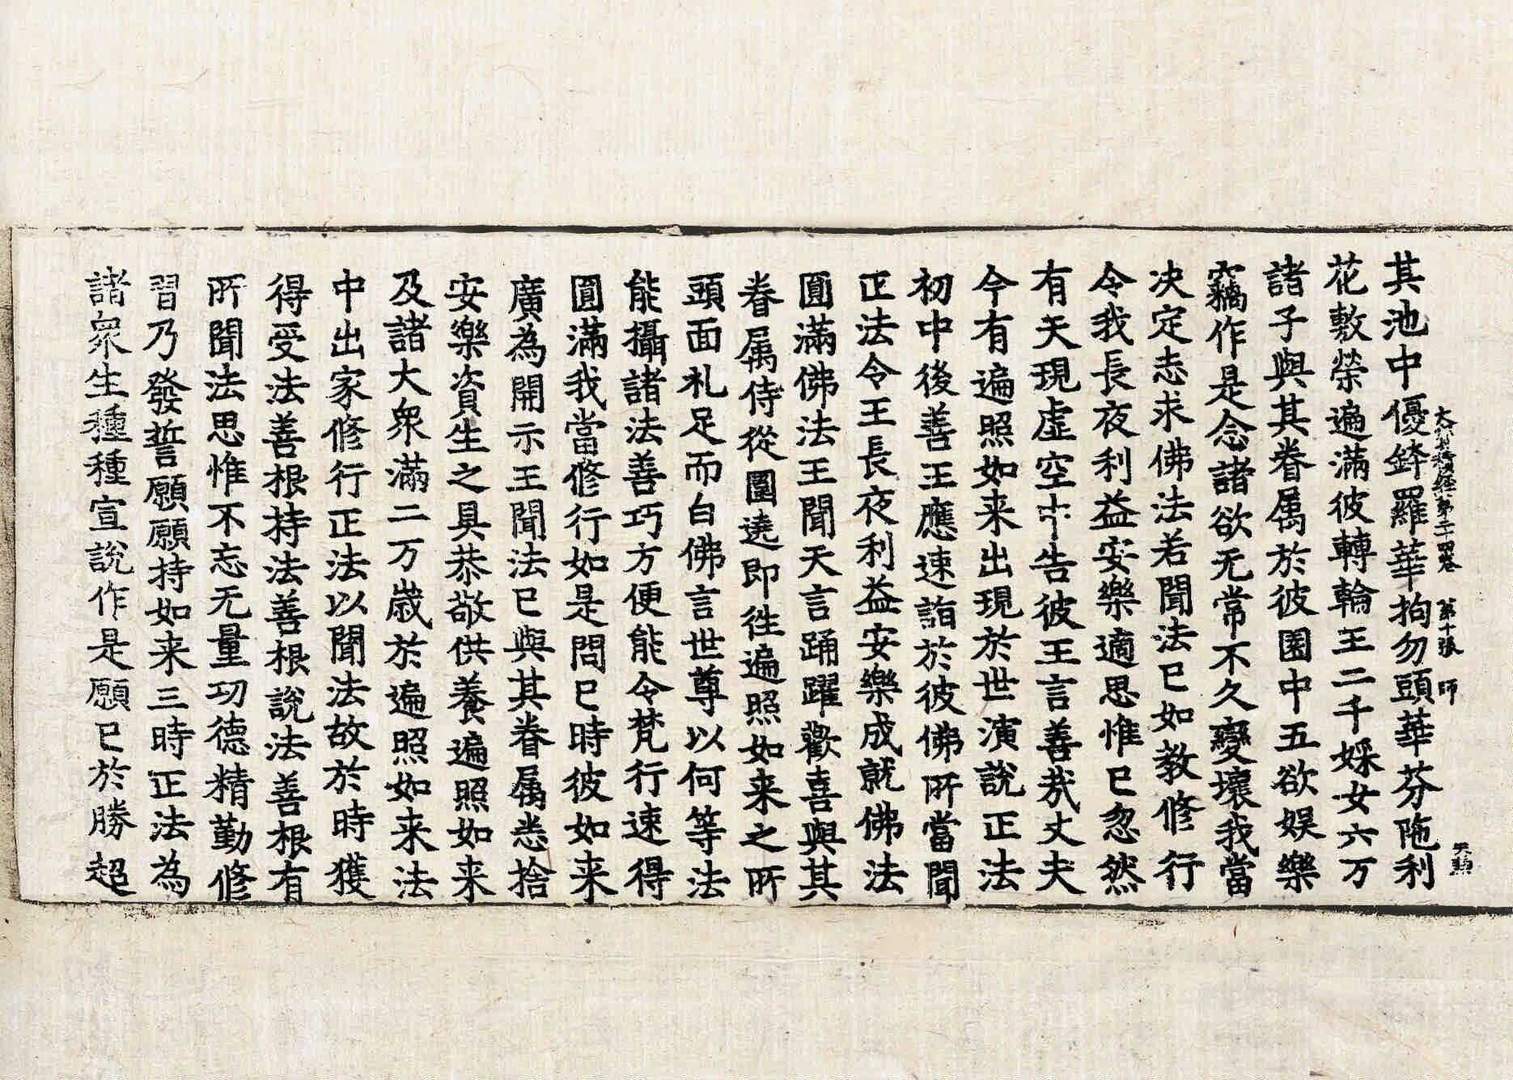 大寶積經第二十四卷 第十張 師
其池中優鉢羅華拘勿頭華芬陁利
花敷榮遍滿彼轉輪王二千婇女六万
諸子與其眷属於彼園中五欲娛樂
竊作是念諸欲无常不久變壞我當
决定志求佛法若聞法已如教修行
令我長夜利益安樂適思惟已忽然
有天現虛空中告彼王言善哉丈夫
今有遍照如来出現於世演說正法
初中後善王應速詣於彼佛所當聞
正法令王長夜利益安樂成就佛法
圓滿佛法王聞天言踊躍歡喜與其
眷属侍從圍遶即往遍照如来之所
頭面礼足而白佛言世尊以何等法
能攝諸法善巧方便能令梵行速得
圓滿我當修行如是問已時彼如来
廣為開示王聞法已與其眷属悉捨
安樂資生之具恭敬供養遍照如来
及諸大衆滿二万歲於遍照如来法
中出家修行正法以聞法故於時獲
得受法善根持法善根說法善根有
所聞法思惟不忘无量功德精勤修
習乃發誓願願持如来三時正法為
諸衆生種種宣說作是願已於勝超